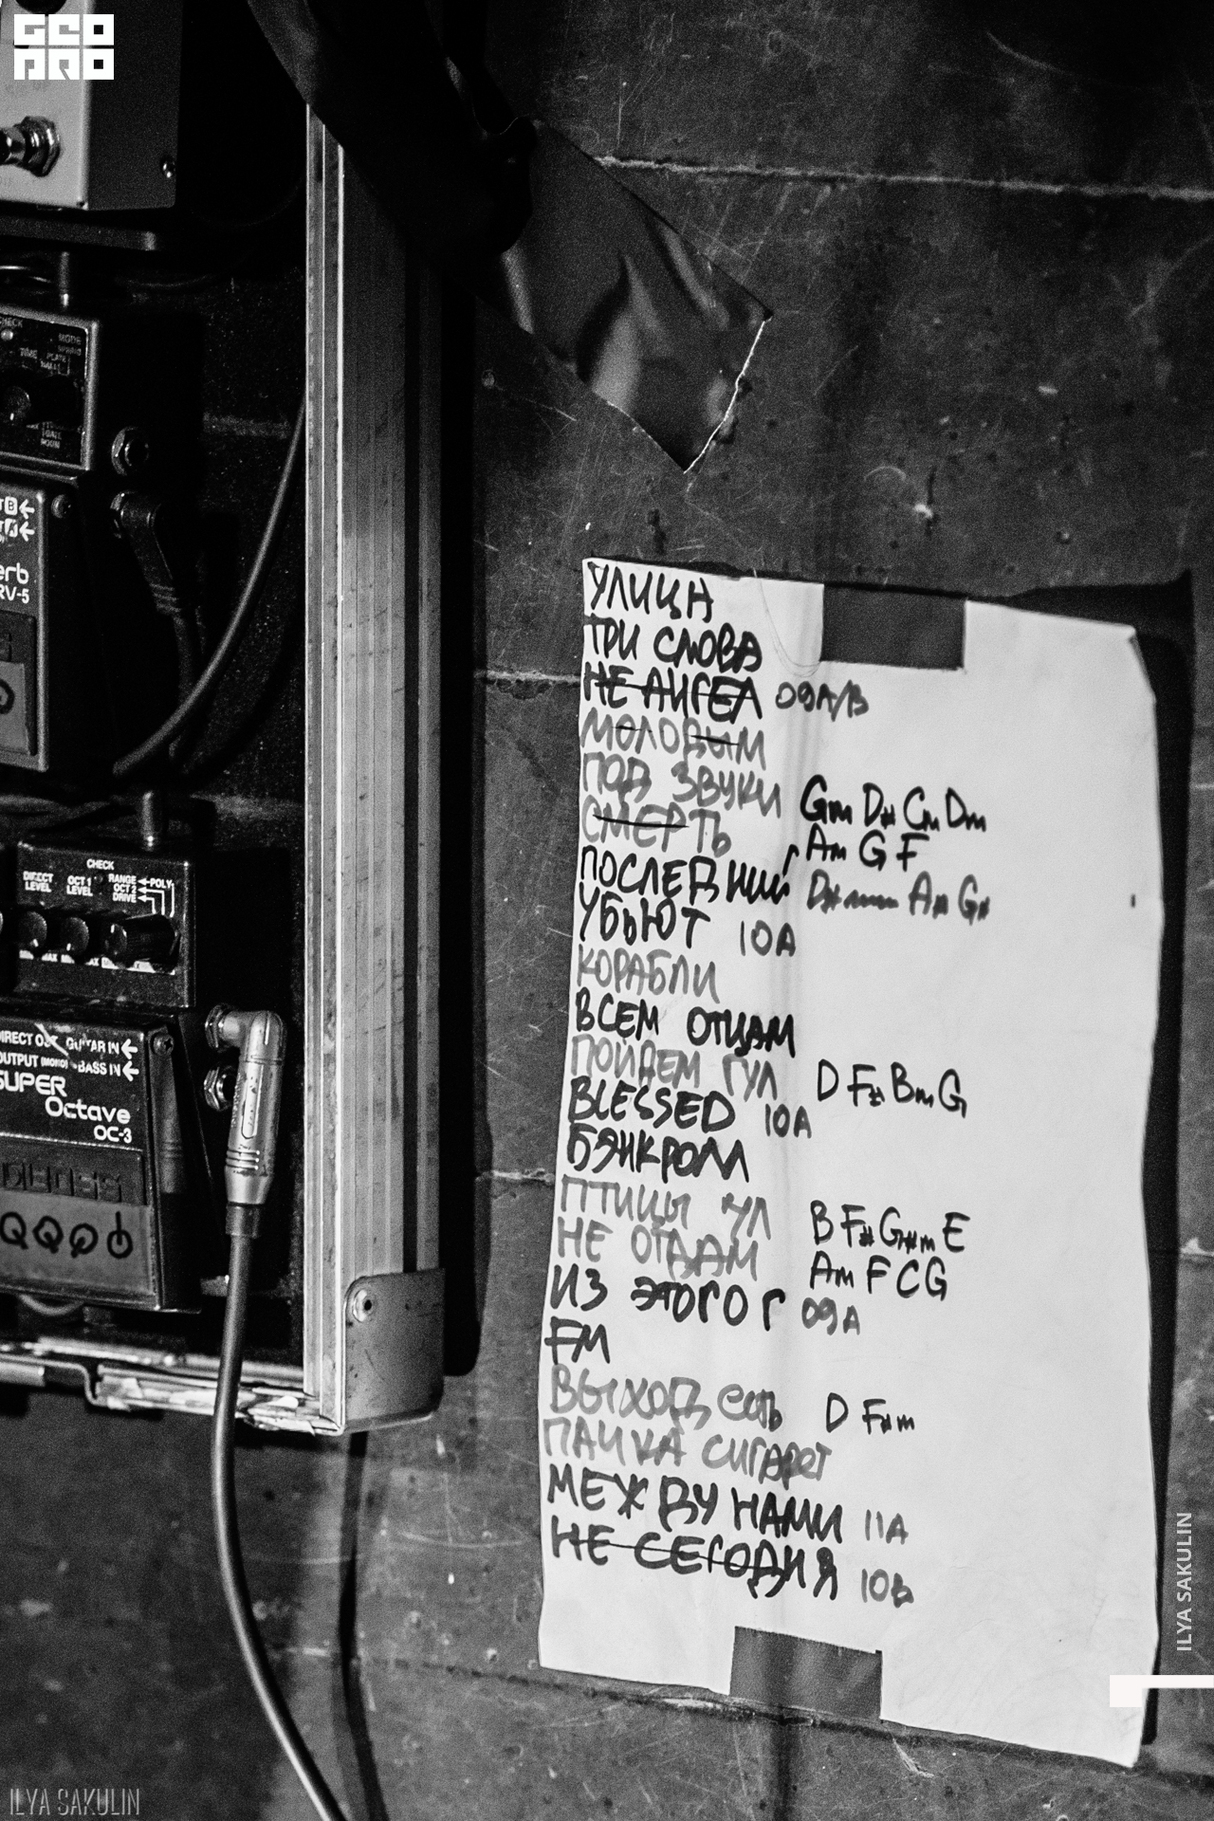 GEO
PRO
CHECK
MODE
TIME
B
RV-5
CHECK
DIRECT LEVEL
OCT 1 LEVEL
RANGE
OCT 2
DRIVE
POLY
DIRECT OUT GUITAR IN
OUTPUT (MONO) BASS IN
SUPER
Octave
OC-3
BOSS
УЛИЦА
ТРИ СЛОВА
НЕ АНГЕЛ 09A/B
МОЛОДЫМ
ПОД ЗВУКИ Gm D# Cm Dm
СМЕРТЬ Am G F
ПОСЛЕДНИЙ
УБЬЮТ 10A
КОРАБЛИ
ВСЕМ ОТЦАМ
ПОЙДЕМ ГУЛ D F# Bm G
BLESSED 10A
БЭНКРОЛЛ
ПТИЦЫ УЛ B F# G#m E
НЕ ОТДАМ Am F C G
ИЗ ЭТОГО Г 09A
FM
ВЫХОД есть D F#m
ПАЧКА СИГАРЕТ
МЕЖДУ НАМИ 11A
НЕ СЕГОДНЯ 10B
ILYA SAKULIN
ILYA SAKULIN